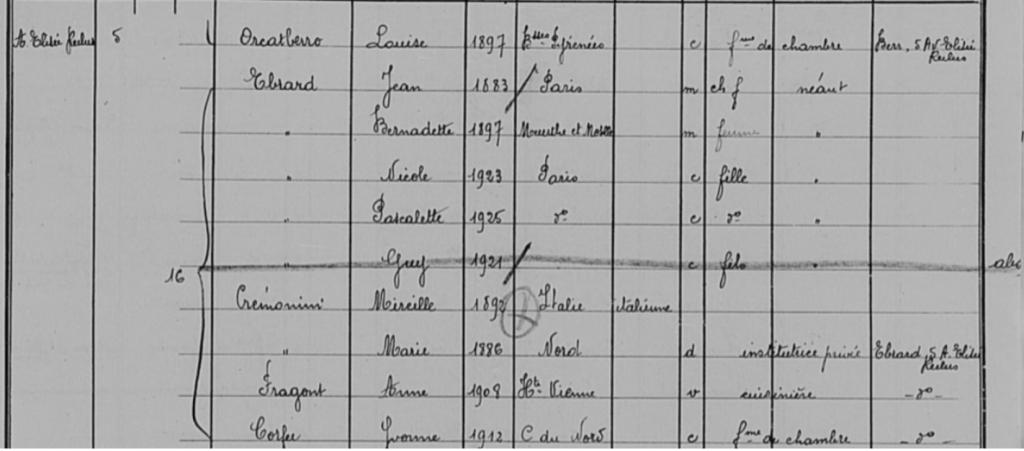 A. Elisée Reclus 5 Orcatberro Louise 1897 Bsses Pyrénées c fme de chambre Berr, 5 AV. Elisée Reclus
Ebrard Jean 1883 Paris m ch f néant
" Bernadette 1897 Meurthe et Moselle m femme "
" Nicole 1923 Paris c fille "
" Pascalette 1925 do c do "
" Guy 1921 c fils " abs
16
Crémonini Mireille 1892 Italie italienne
" Marie 1886 Nord d institutrice privée Ebrard, 5 A. Elisée Reclus
Fragont Anne 1908 Hte Vienne v cuisinière - do -
Corfec Yvonne 1912 C du Nord c fme de chambre - do -